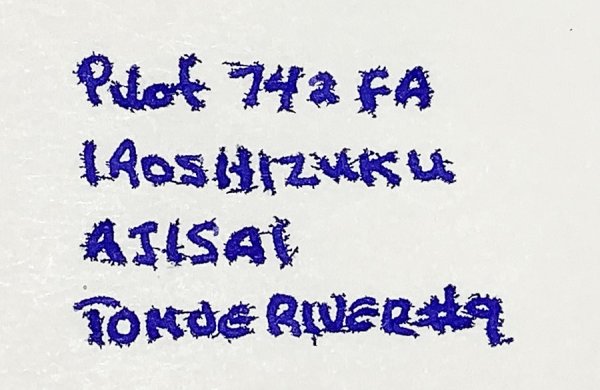 Pilot 742 FA
IROSHIZUKU
AJISAI
TOMOE RIVER #9